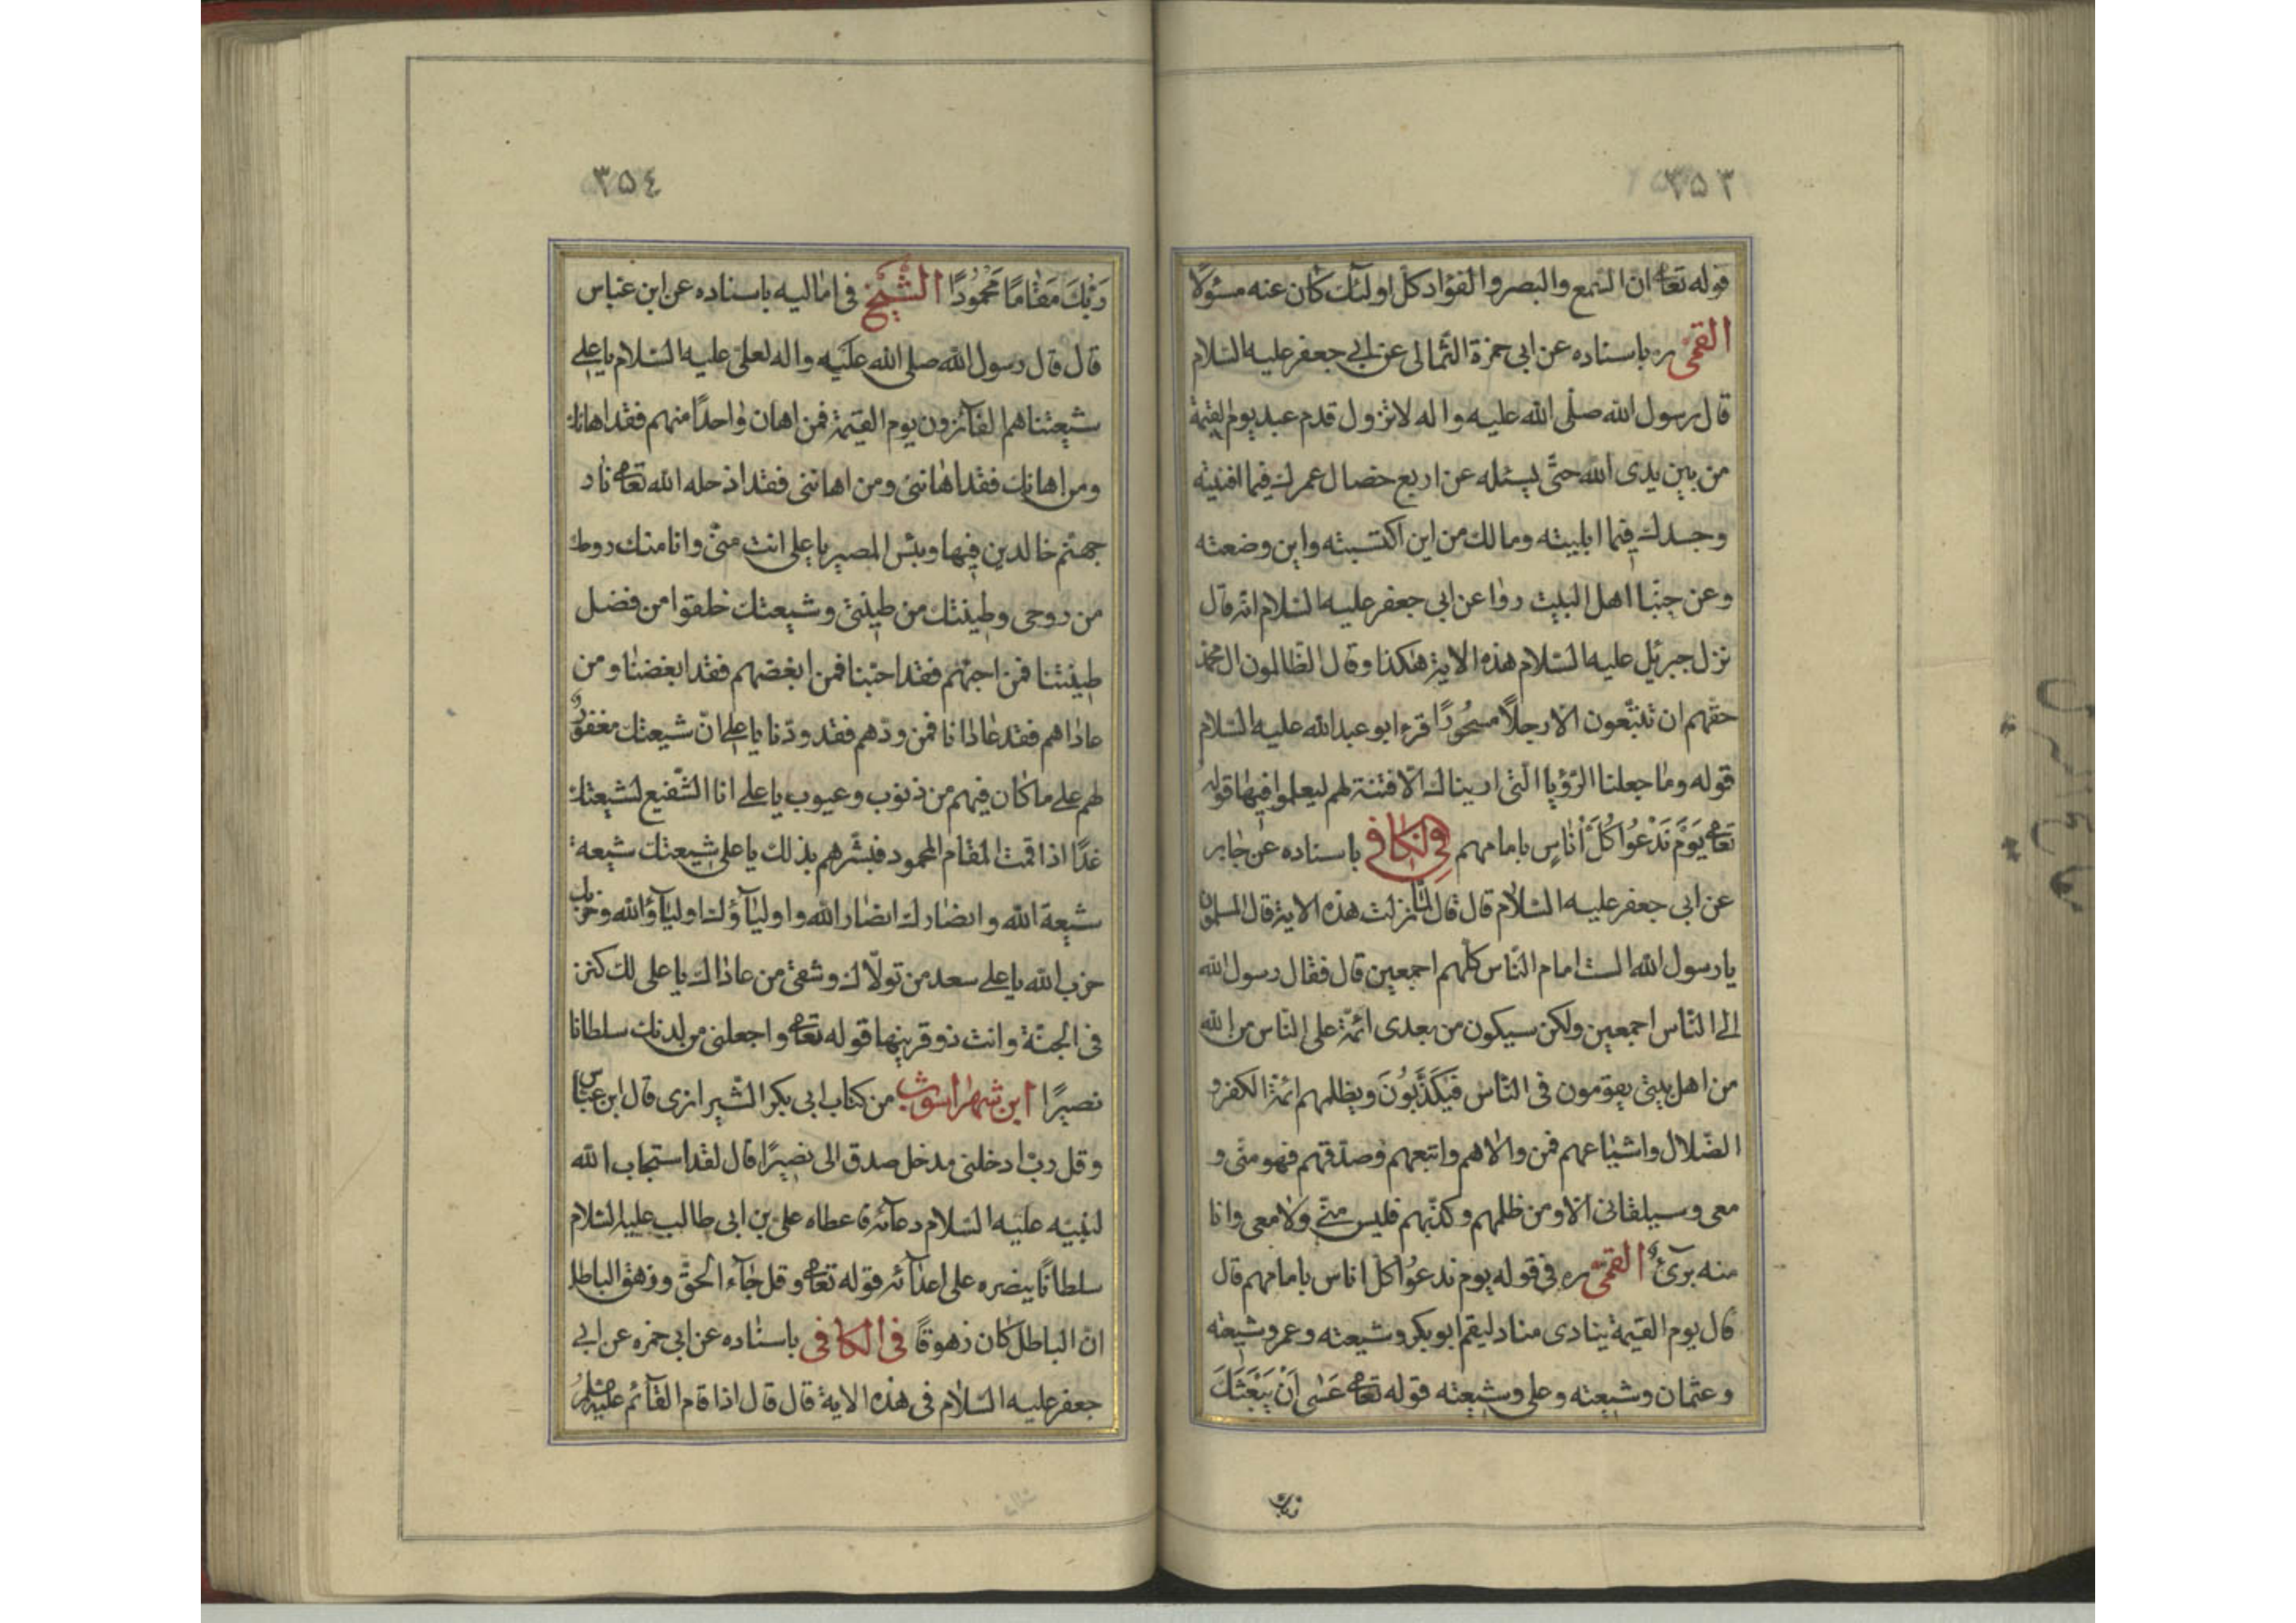 ٣٥٣
قوله تعا ان السمع والبصر والفؤاد كل اولئك كان عنه مسئولا
القمی ره باسناده عن ابی حمزة الثمالی عن ابی جعفر علیه السلام
قال رسول الله صلی الله علیه واله لا تزول قدم عبد یوم القیمة
من بین یدی الله حتی یسئله عن اربع خصال عمرك فیما افنیته
وجسدك فیما ابلیته ومالك من این اکتسبته واین وضعته
وعن حبنا اهل البیت روا عن ابی جعفر علیه السلام انه قال
نزل جبرئیل علیه السلام هذه الایة هکذا وقال الظالمون ال محمد
حقهم ان تتبعون الا رجلا مسحورا قرء ابو عبد الله علیه السلام
قوله وما جعلنا الرؤیا التی اریناك الا فتنة لهم لیعملوا فیها قوله
تعا یَوْمَ نَدْعُوا كُلَّ اُنَاسٍ بامامهم فی الکافی باسناده عن جابر
عن ابی جعفر علیه السلام قال قال لما نزلت هذه الایة قال المسلمون
یا رسول الله الست امام الناس کلهم اجمعین قال فقال رسول الله
الی الناس اجمعین ولکن سیکون من بعدی ائمة علی الناس من الله
من اهل بیتی یقومون فی الناس فَیُکَذَّبُونَ ویظلمهم ائمة الکفر و
الضلال واشیاعهم فمن والاهم واتبعهم وصدقهم فهو منی و
معی وسیلقانی الا ومن ظلمهم وکذبهم فلیس منی ولا معی وانا
منه برئ القمی ره فی قوله یوم ندعوا کل اناس بامامهم قال
قال یوم القیمة ینادی مناد لیقم ابو بکر وشیعته وعمر وشیعته
وعثمان وشیعته وعلی وشیعته قوله تعا عَسٰی اَنْ یَبْعَثَكَ
ربك
٣٥٤
رَبُّكَ مَقَامًا مَحْمُودًا الشَّیخ فی امالیه باسناده عن ابن عباس
قال قال رسول الله صلی الله علیه واله لعلی علیه السلام یا علی
شیعتنا هم الفآئزون یوم القیمة فمن اهان واحدا منهم فقد اهانك
ومن اهانك فقد اهاننی ومن اهاننی فقد ادخله الله تعا نار
جهنم خالدین فیها وبئس المصیر یا علی انت منی وانا منك روحك
من روحی وطینتك من طینتی وشیعتك خلقوا من فضل
طینتنا فمن احبهم فقد احبنا فمن ابغضهم فقد ابغضنا ومن
عاداهم فقد عادانا فمن ودهم فقد ودنا یا علی ان شیعتك مغفور
لهم علی ما کان فیهم من ذنوب وعیوب یا علی انا الشفیع لشیعتك
غدا اذا قمت المقام المحمود فبشرهم بذلك یا علی شیعتك شیعة
شیعة الله وانصارك انصار الله واولیآؤك اولیآؤ الله وحزبك
حزب الله یا علی سعد من تولاك وشقی من عاداك یا علی لك کنز
فی الجنة وانت ذو قرنیها قوله تعا واجعلنی من لدنك سلطانا
نصیرًا ابن شهراشوب من کتاب ابی بکر الشیرازی قال ابن عباس
وقل رب ادخلنی مدخل صدق الی نصیرًا قال لقد استجاب الله
لنبیه علیه السلام دعآئه فاعطاه علی بن ابی طالب علیه السلام
سلطانًا ینصره علی اعدآئه قوله تعا وقل جآء الحق وزهق الباطل
ان الباطل کان زهوقًا فی الکافی باسناده عن ابی حمزه عن ابی
جعفر علیه السلام فی هذه الایة قال قال اذا قام القآئم علیه السلام